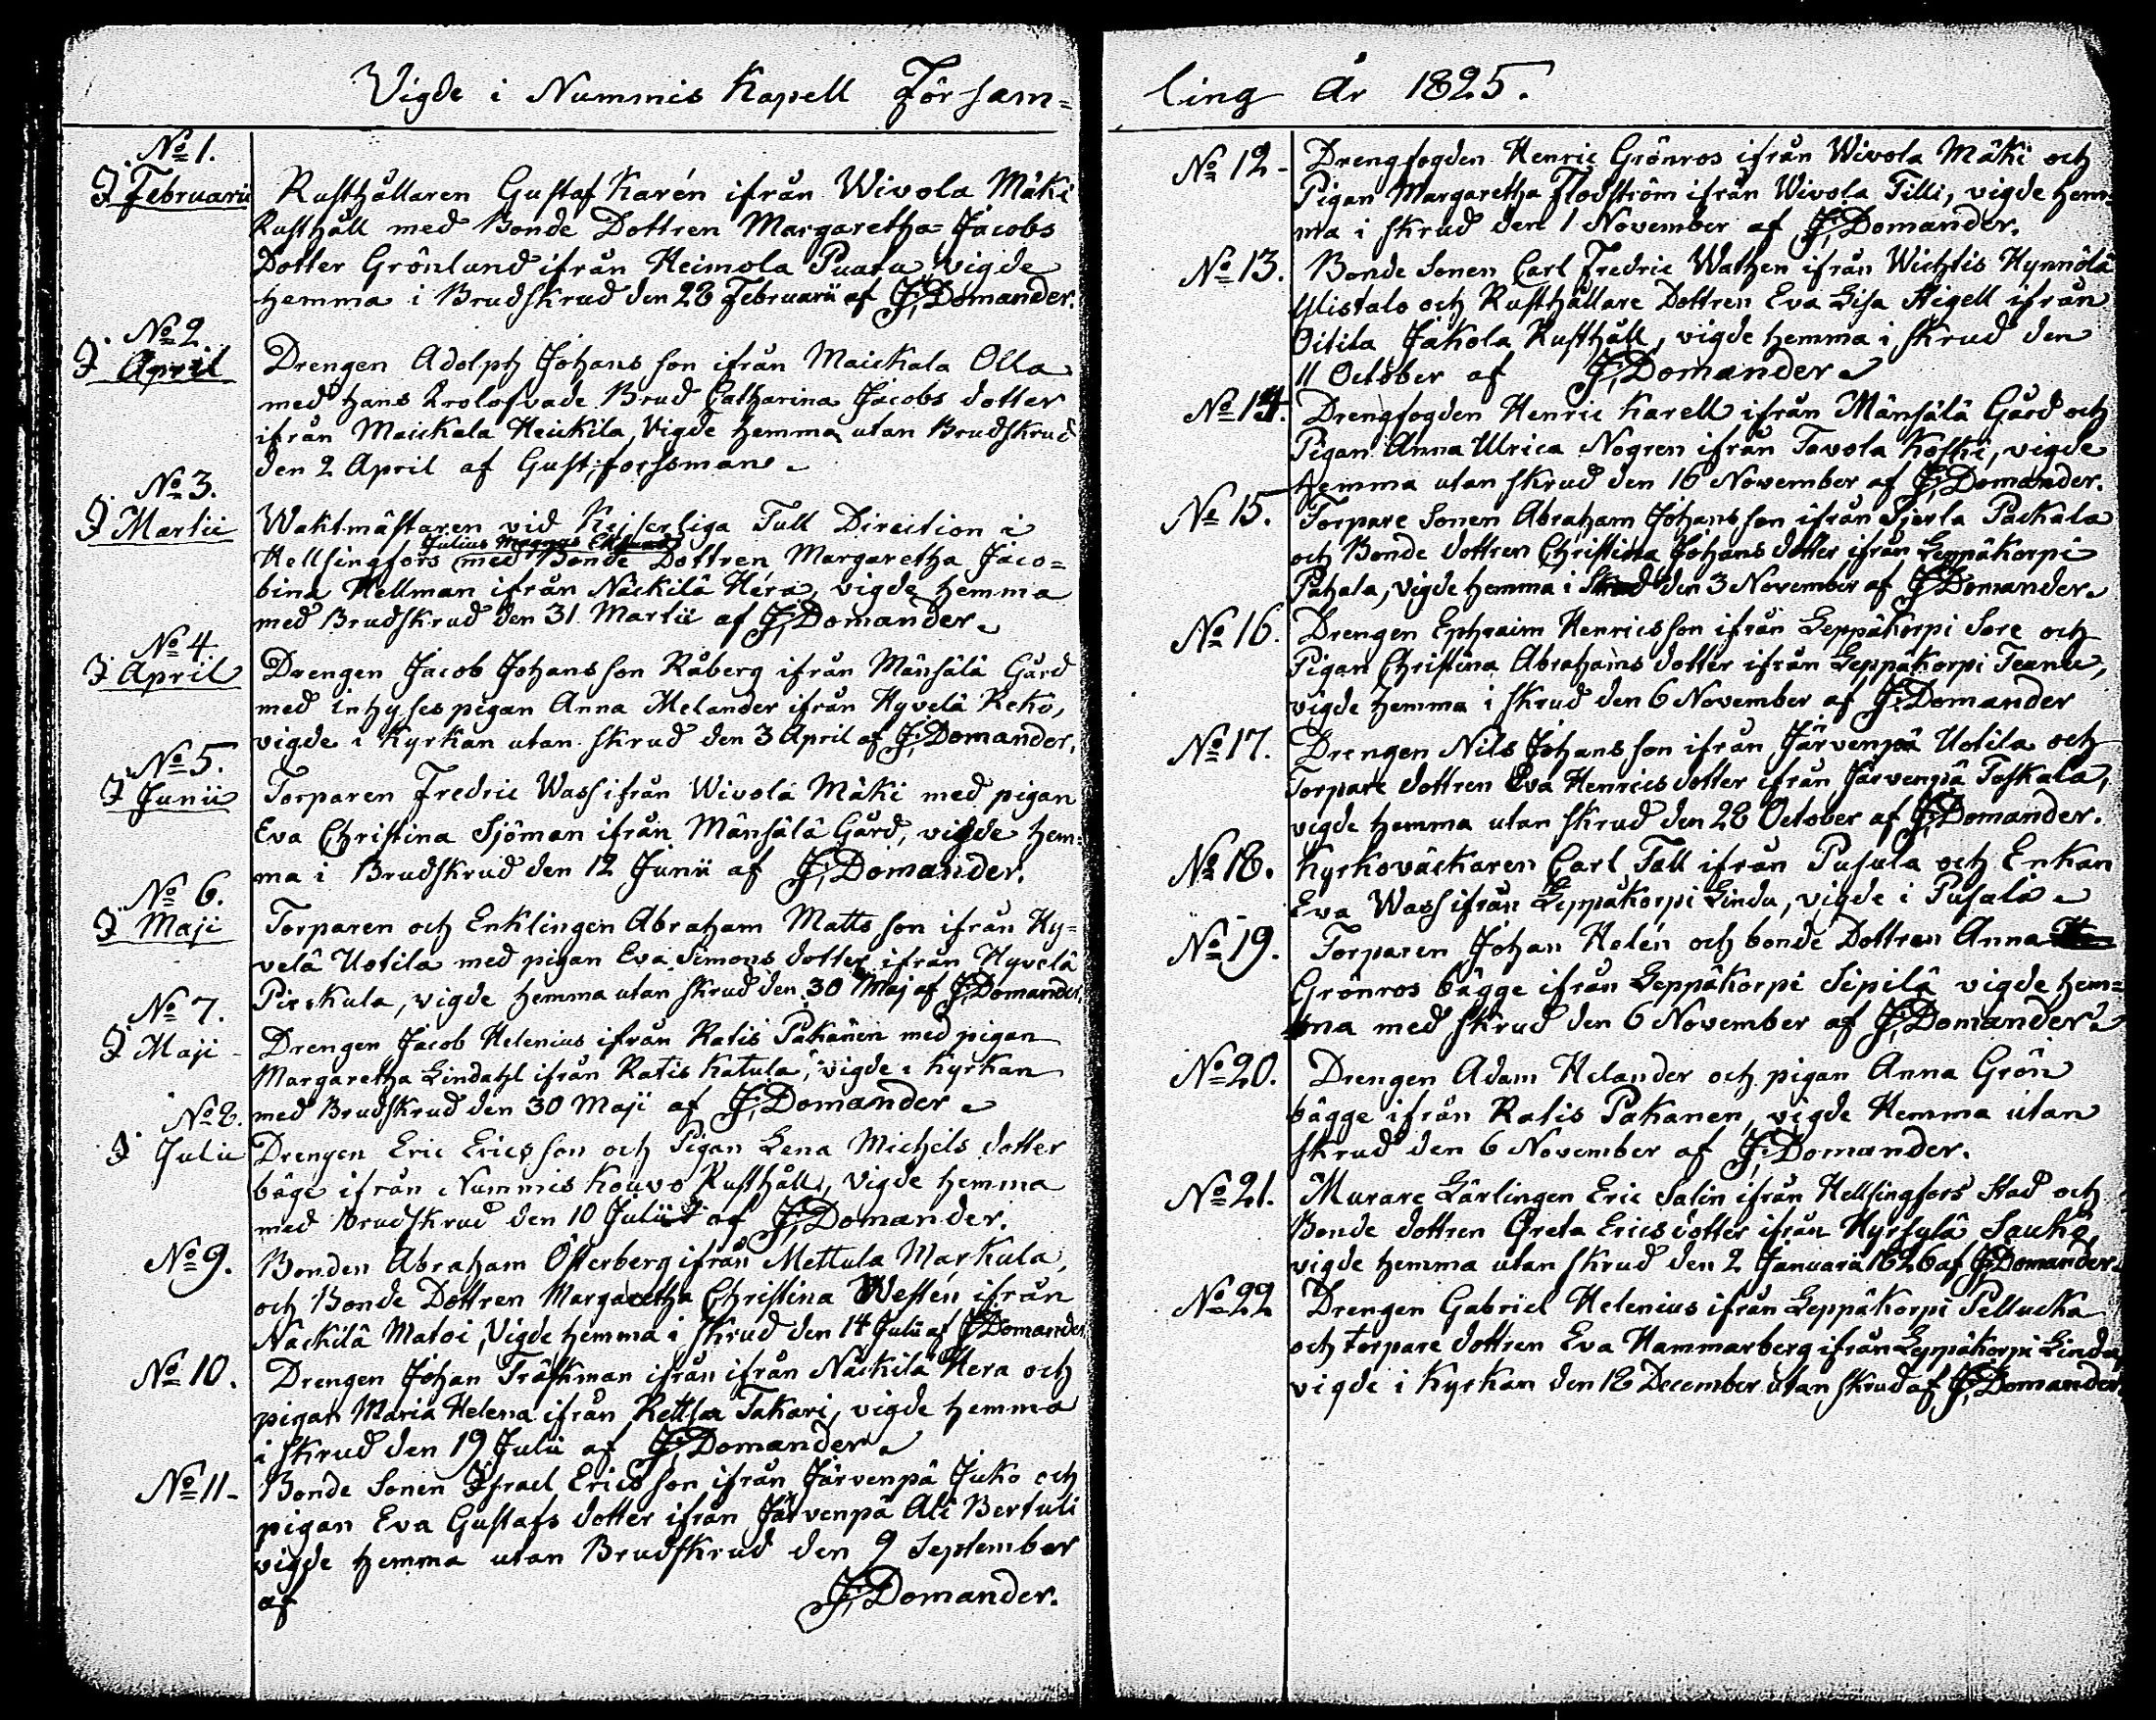 Vigde i Nummis Kapell Församling År 1825.
No 1.
I Februarii
Rusthållaren Gustaf Karén ifrån Wivola Mäki
Rusthåll med Bonde Dottren Margaretha Jacobs
Dotter Grönlund ifrån Heimola Puatu, vigde
hemma i Brudskrud den 28 Februarii af J. Domander.
No 2.
I April
Drengen Adolph Johans son ifrån Maickala Olla
med hans trolofvade Brud Catharina Jacobs dotter
ifrån Maickala Heickila, Vigde hemma utan Brudskrud
den 2 April af Gust. Forssman.
No 3.
I Martii
Waktmästaren vid Kejserliga Tull Direction i
Julius Magnus Eklund
Hellsingfors med Bonde Dottren Margaretha Jaco=
bina Hellman ifrån Näckilä Hera, vigde hemma
med Brudskrud den 31 Martii af J. Domander.
No 4
I April
Drengen Jacob Johans son Råberg ifrån Mänsälä Gård
med inhyses pigan Anna Melander ifrån Hyvelä Reko,
vigde i Kyrkan utan skrud den 3 April af J. Domander.
No 5.
I Junii
Torparen Fredric Wass ifrån Wivola Mäki med pigan
Eva Christina Sjöman ifrån Mänsälä Gård, vigde hem=
ma i Brudskrud den 12 Junii af J. Domander.
No 6.
I Maji
Torparen och Enklingen Abraham Matts son ifrån Hy=
velä Uotila med pigan Eva Simons dotter ifrån Hyvelä
Pirskula, vigde hemma utan skrud den 30 Maj af J. Domander.
No 7.
I Maji
Drengen Jacob Helenius ifrån Ratis Pakanen med pigan
Margaretha Lindahl ifrån Ratis Katula, vigde i Kyrkan
med Brudskrud den 30 Maji af J. Domander
No 8.
I Julii
Drengen Eric Erics son och Pigan Lena Michels dotter
bäge ifrån Nummis Kouvo Rusthåll, vigde hemma
med Brudskrud den 10 Julii af J. Domander.
No 9.
Bonden Abraham Österberg ifrån Mettula Markula,
och Bonde Dottren Margaretha Christina Westén ifrån
Näckilä Matoi, Vigde hemma i skrud den 14 Julii af J. Domander
No 10.
Drengen Johan Träskman ifrån ifrån Näckilä Hera och
pigan Maria Helena ifrån Rettlax Takari, vigde hemma
i skrud den 19 Julii af J. Domander
No 11-
Bonde Sonen Israel Erics son ifrån Järvenpä Juko och
pigan Eva Gustafs dotter ifrån Järvenpä Ali Bertuli
vigde hemma utan Brudskrud den 9 September
af J. Domander.
No 12-
Drengfogden Henric Grönros ifrån Wivola Mäki och
Pigan Margaretha Flodström ifrån Wivola Tilli, vigde hem=
ma i skrud den 1 November af J. Domander.
No 13.
Bonde Sonen Carl Fredric Wathen ifrån Wichtis Hynnölä
Ylistalo och Rusthållare Dottren Eva Lisa Stigell ifrån
Oitila Jakola Rusthåll, vigde hemma i skrud den
11 October af J. Domander
No 14.
Drengfogden Henric Karell ifrån Mänsälä Gård och
Pigan Anna Ulrica Nogren ifrån Tavola Koski, vigde
hemma utan skrud den 16 November af J. Domander.
No 15.
Torpare Sonen Abraham Johans son ifrån Sjerla Packala
och Bonde dottren Christina Johans dotter ifrån Leppäkorpi
Pahala, vigde hemma i skrud den 3 November af J. Domander
No 16.
Drengen Ephraim Henrics son ifrån Leppäkorpi Sore och
Pigan Christina Abrahams dotter ifrån Leppäkorpi Teanu,
vigde hemma i skrud den 6 November af J. Domander
No 17.
Drengen Nils Johans son ifrån Järvenpä Uotila och
Torpare dottren Eva Henrics dotter ifrån Järvenpä Taskala,
vigde hemma utan skrud den 28 October af J. Domander.
No 18.
Kyrkoväckaren Carl Tall ifrån Pusula och Enkan
Eva Wass ifrån Leppäkorpi Lindu, vigde i Pusala
No 19.
Torparen Johan Helén och bonde Dottren Anna
Grönros bägge ifrån Leppäkorpi Sipilä vigde hem=
ma med skrud den 6 November af J. Domander
No 20.
Drengen Adam Helander och pigan Anna Grön
bägge ifrån Ratis Pakanen, vigde Hemma utan
skrud den 6 November af J. Domander.
No 21.
Murare Lärlingen Eric Salin ifrån Hellsingfors Stad och
Bonde dottren Greta Erics dotter ifrån Hyrsylä Sauko,
vigde hemma utan skrud den 2 Januarii 1826 af J. Domander.
No 22
Drengen Gabriel Helenius ifrån Leppäkorpi Pellucka
och torpare dottren Eva Hammarberg ifrån Leppäkorpi Lindu,
vigde i Kyrkan den 18 December utan skrud af J. Domander